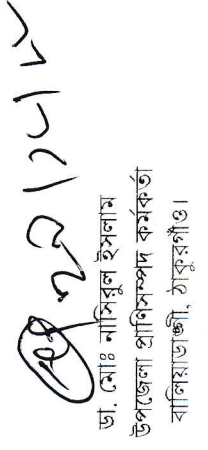 ডা. মোঃ নাসিরুল ইসলাম
উপজেলা প্রাণিসম্পদ কর্মকর্তা
বালিয়াডাঙ্গী, ঠাকুরগাঁও।